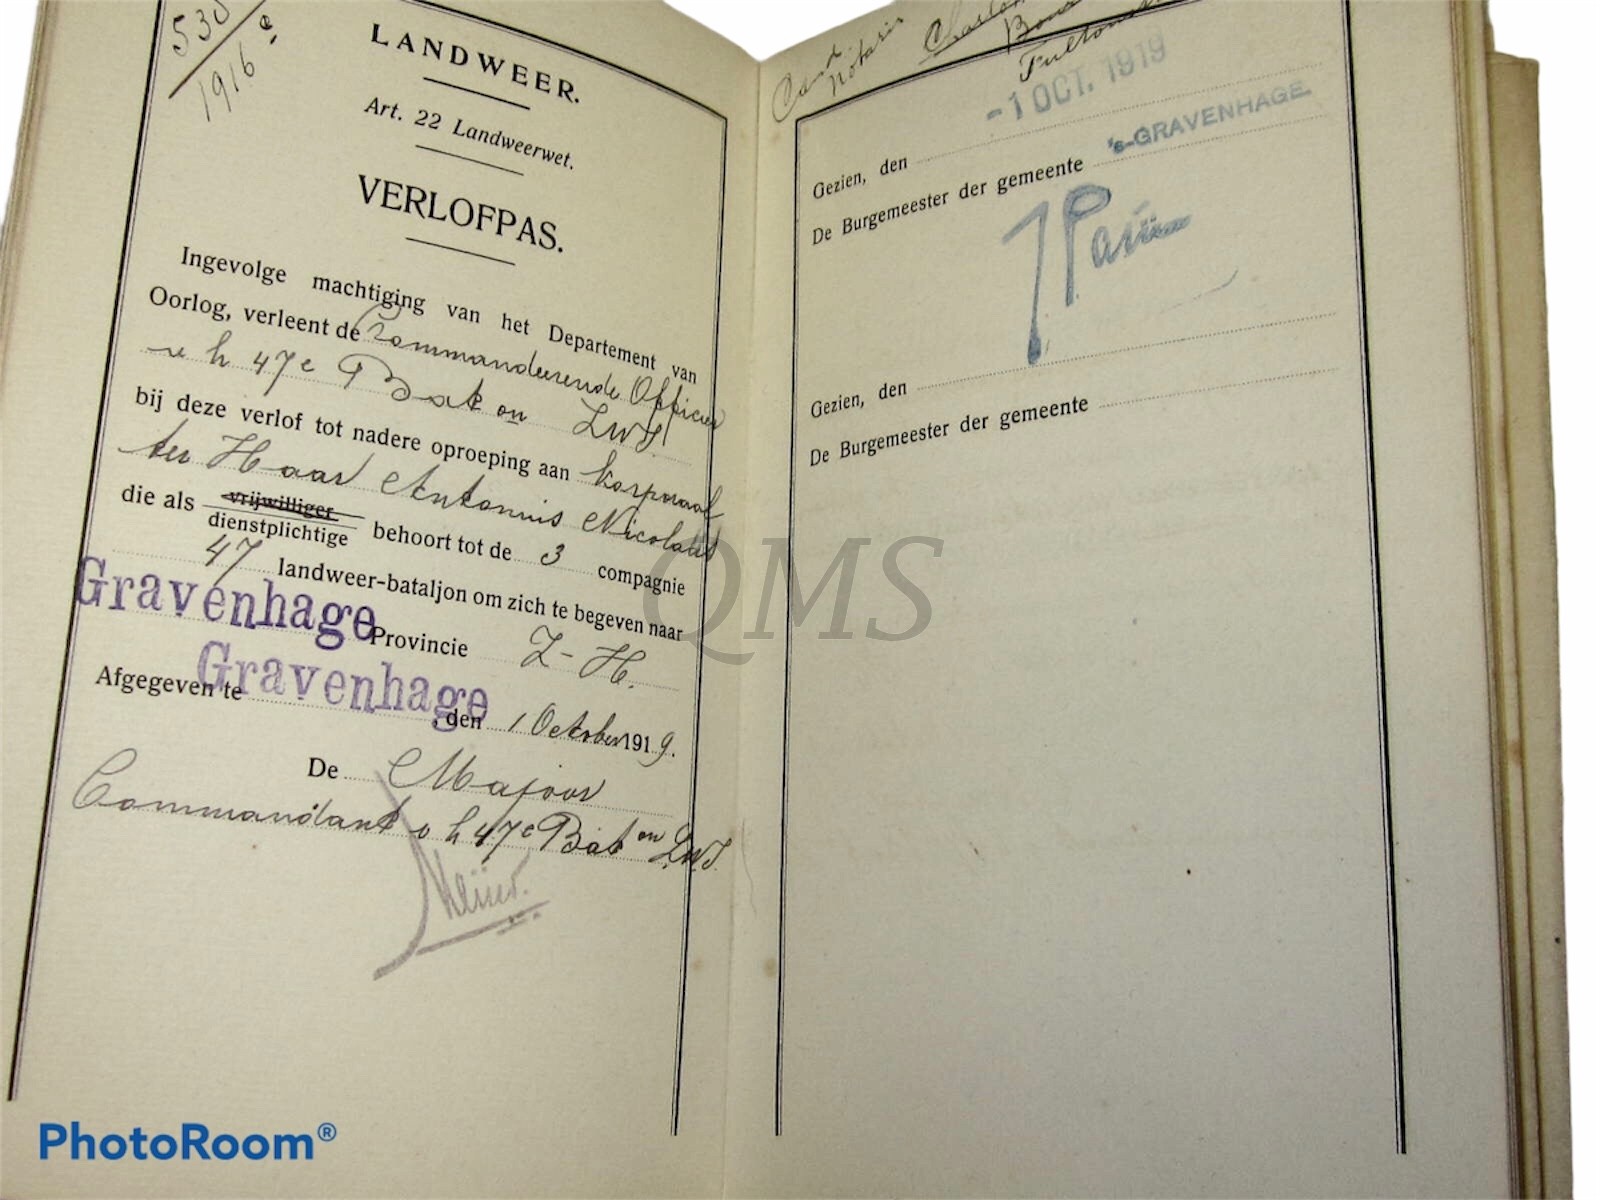 1916
LANDWEER.
Art. 22 Landweerwet.
VERLOFPAS.
Ingevolge machtiging van het Departement van
Oorlog, verleent de Commandeerende Officier
v h 47e Bat on LWI
bij deze verlof tot nadere oproeping aan korporaal
ter Haar Antonius Nicolaas
die als vrijwilliger
dienstplichtige behoort tot de 3 compagnie
47 landweer-bataljon om zich te begeven naar
Gravenhage Provincie Z-H.
Afgegeven te Gravenhage, den 1 October 1919.
De Majoor
Commandant v h 47e Bat on LWI.
Cand Notaris
-1 OCT. 1919
Gezien, den
De Burgemeester der gemeente 's-GRAVENHAGE.
Gezien, den
De Burgemeester der gemeente
QMS
PhotoRoom®